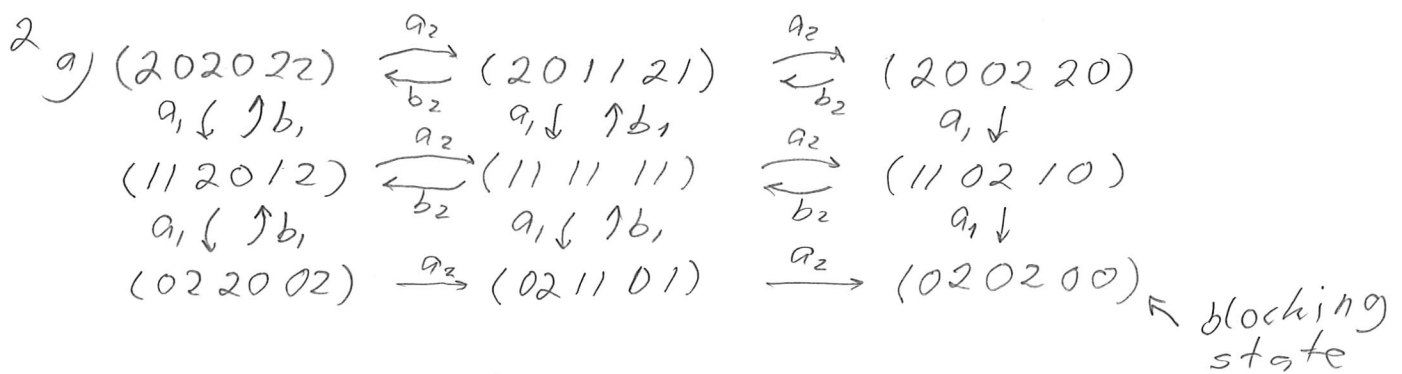 2 a) (202022) a₂ ⇄ b₂ (201121) a₂ ⇄ b₂ (200220)
a₁↓ ↑b₁ a₁↓ ↑b₁ a₁↓
(112012) a₂ ⇄ b₂ (111111) a₂ ⇄ b₂ (110210)
a₁↓ ↑b₁ a₁↓ ↑b₁ a₁↓
(022002) a₂ → (021101) a₂ → (020200)
↖ blocking
state